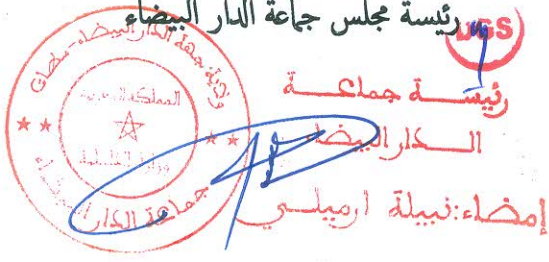 رئيسة مجلس جماعة الدار البيضاء
DGS
رئيســة جماعــة
الــدار البيضــاء
إمضاء:نبيلة ارميلــي
ولاية جهة الدار البيضاء-سطات
المملكة المغربية
وزارة الداخلية
جماعة الدار البيضاء